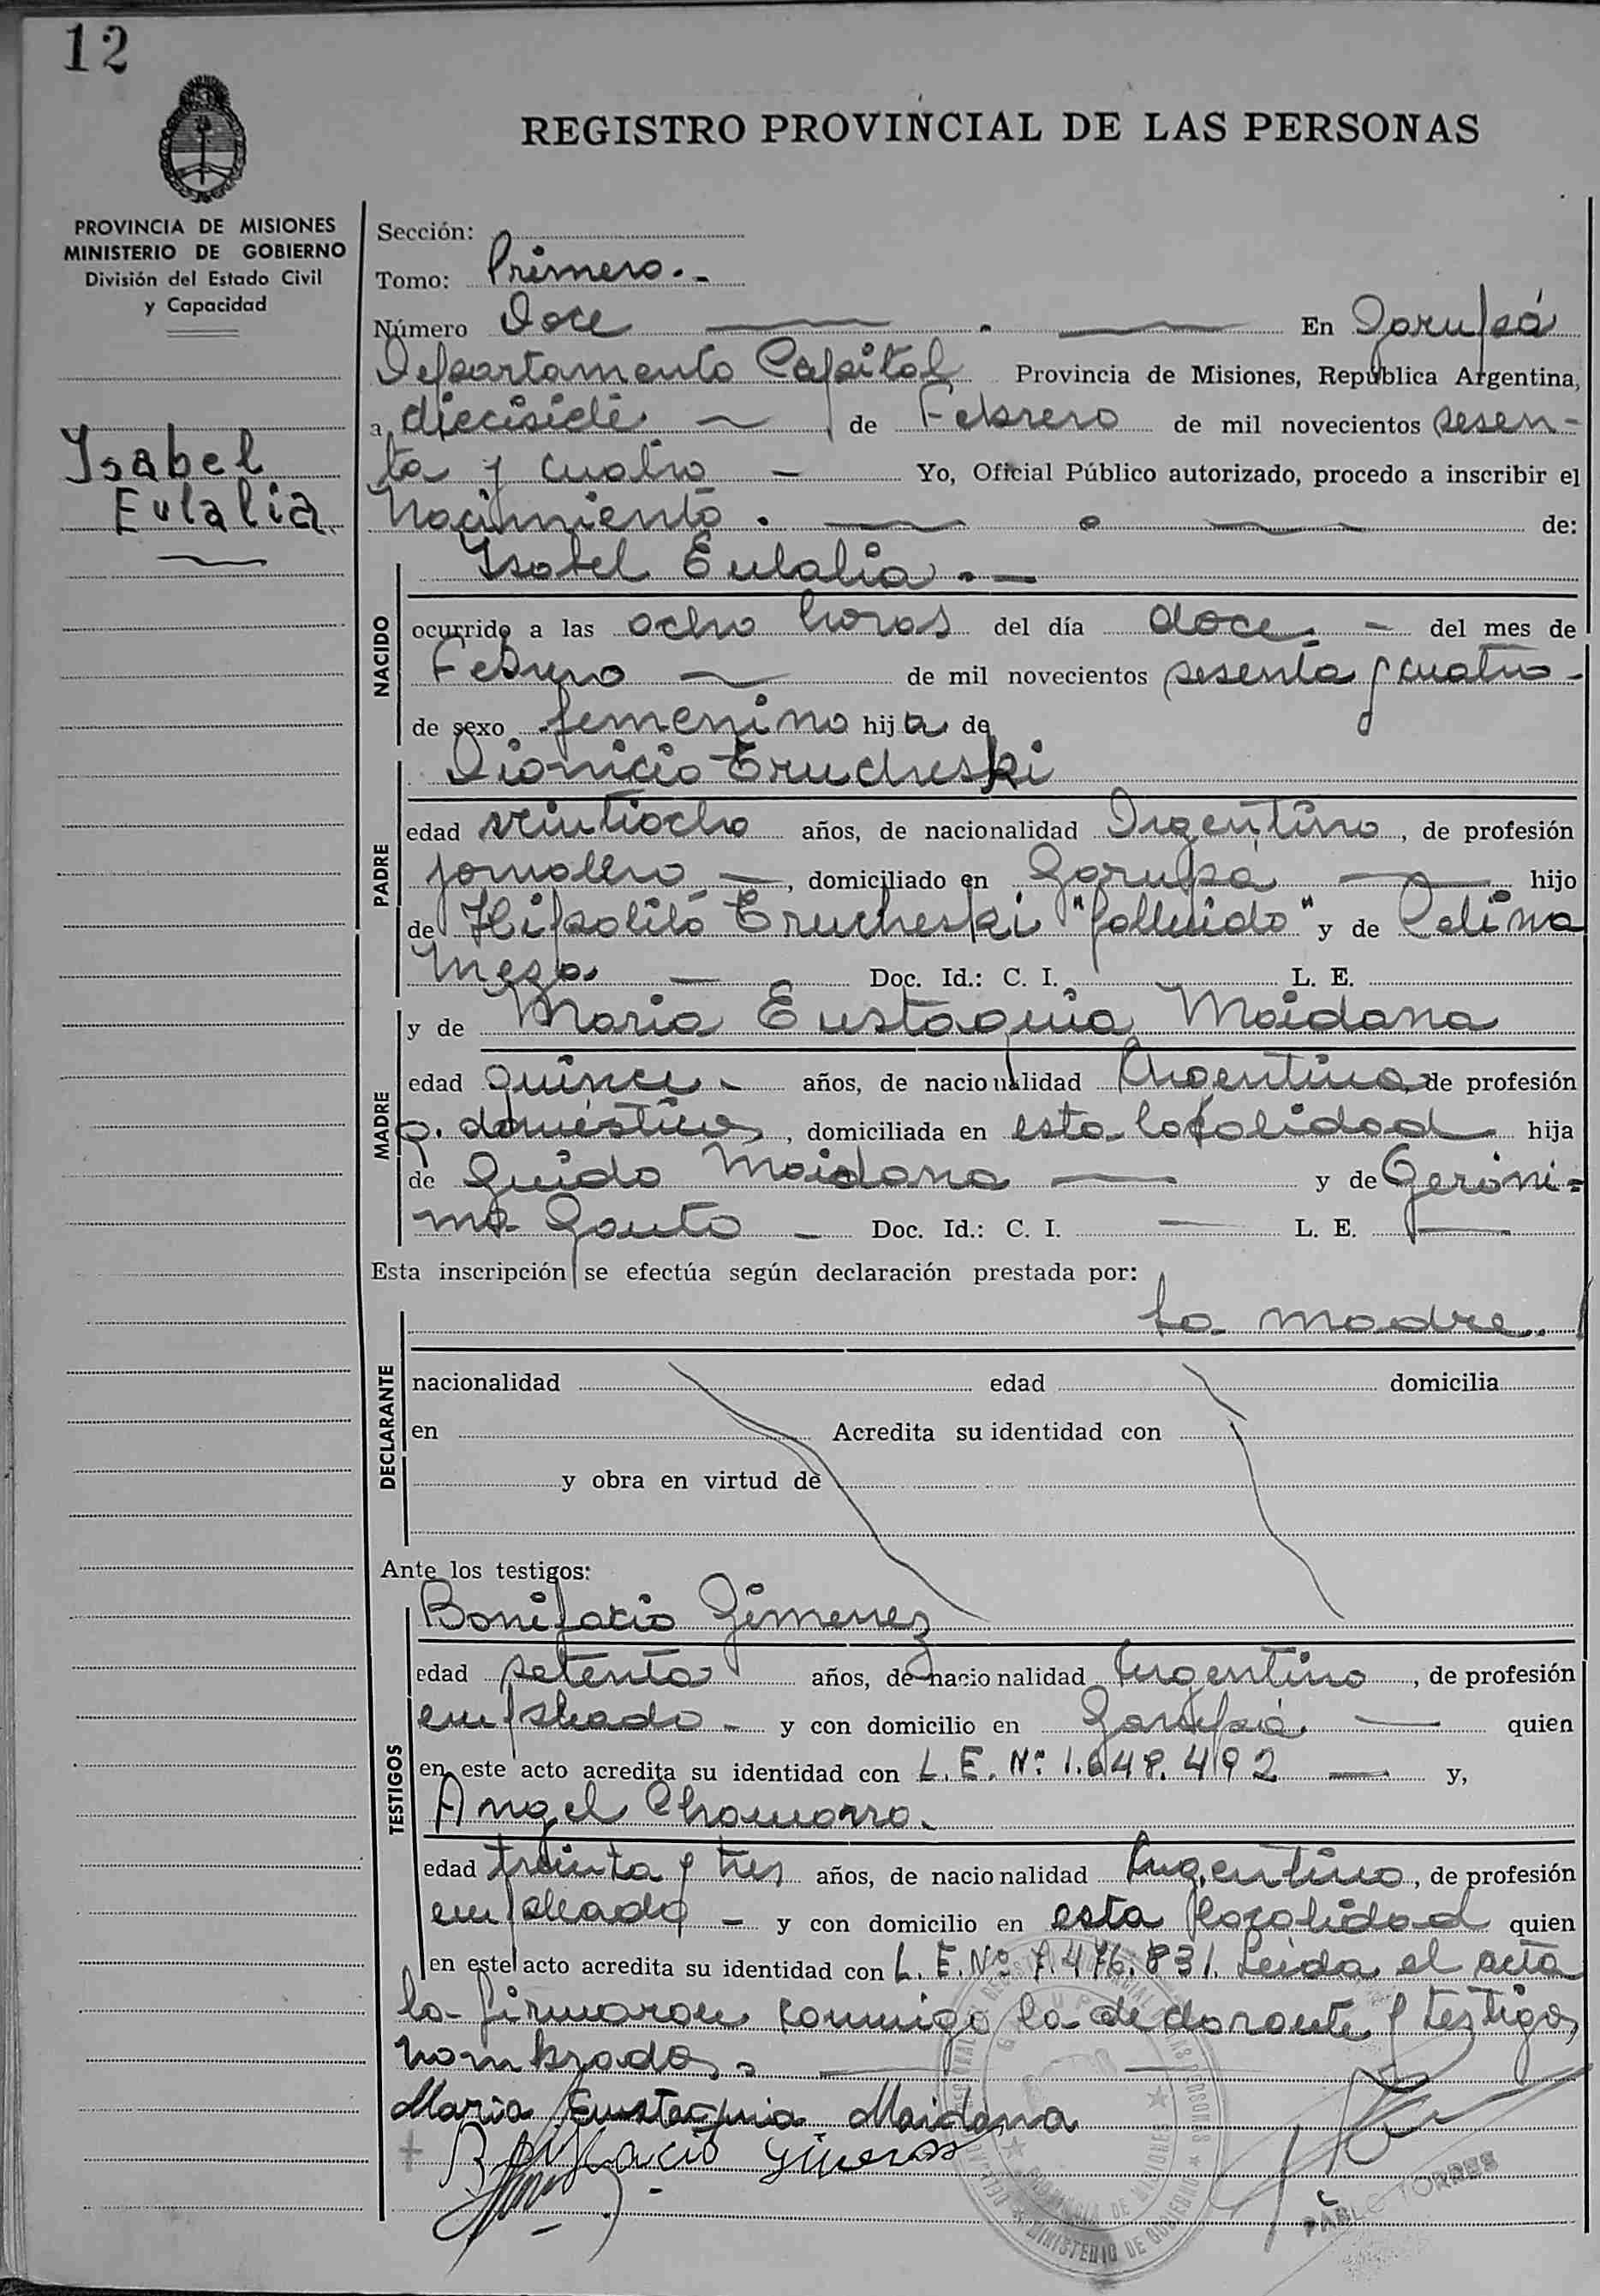 12
REGISTRO PROVINCIAL DE LAS PERSONAS
PROVINCIA DE MISIONES
MINISTERIO DE GOBIERNO
División del Estado Civil
y Capacidad
Isabel
Eulalia
Sección:
Tomo: Primero.-
Número Doce En Garupá
Departamento Capital Provincia de Misiones, República Argentina,
a diecisiete de Febrero de mil novecientos sesen-
ta y cuatro - Yo, Oficial Público autorizado, procedo a inscribir el
Nacimiento. de:
NACIDO
Isabel Eulalia.-
ocurrido a las ocho horas del día doce.- del mes de
Febrero de mil novecientos sesenta y cuatro-
de sexo femenino hija de
PADRE
Dionicio Erucheski
edad veintiocho años, de nacionalidad Argentino, de profesión
jornalero -, domiciliado en Garupá hijo
de Hipolito Erucheski "fallecido" y de Celina
Meza. - Doc. Id.: C. I. L. E.
MADRE
y de Maria Eustaquia Maidana
edad quince - años, de nacionalidad Argentina, de profesión
q. domésticos, domiciliada en esta localidad hija
de Guido Maidana y de Geróni=
ma Gauto - Doc. Id.: C. I. — L. E. —
Esta inscripción se efectúa según declaración prestada por:
La madre.
DECLARANTE
nacionalidad edad domicilia
en Acredita su identidad con
y obra en virtud de
Ante los testigos:
TESTIGOS
Bonifacio Gimenez
edad setenta años, de nacionalidad Argentino, de profesión
empleado - y con domicilio en Garupá. — quien
en este acto acredita su identidad con L. E. Nº 1.648.492 — y,
Angel Chamorro.
edad treinta y tres años, de nacionalidad Argentino, de profesión
empleado - y con domicilio en esta localidad quien
en este acto acredita su identidad con L. E. Nº 7.476.831. Leida el acta
la firmaron conmigo la declarante y testigos
nombrados.
Maria Eustaquia Maidana
Bonifacio Gimenez
PABLO TORRES
PROVINCIA DE MISIONES
MINISTERIO DE GOBIERNO